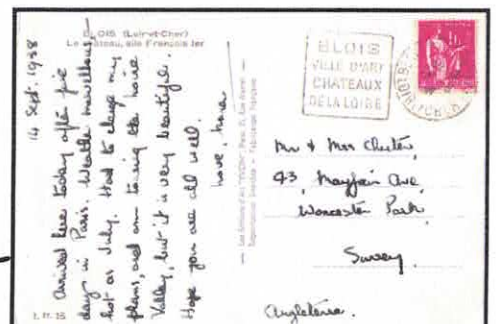 BLOIS (Loir-et-Cher)
Le Château, aile François Ier
14 Sept. 1938
Arrived here today after five
days in Paris. Weather marvellous,
hot as July. Had to change my
plans, and am to the Loire
Valley, but it is very beautiful.
Hope you are all well.
love,
BLOIS
VILLE D'ART
CHATEAUX
DE LA LOIRE
Mr & Mrs
43, Mayfair Ave,
Worcester Park,
Surrey
Angleterre.